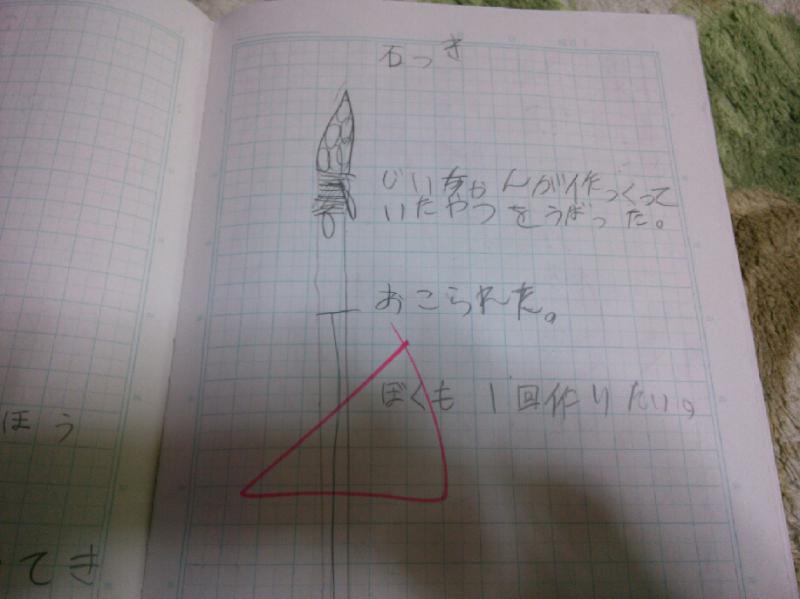 石つき
じいちゃんが作っくって
いたやつをうばった。
おこられた。
ぼくも1回作りたい。
ほう
てき